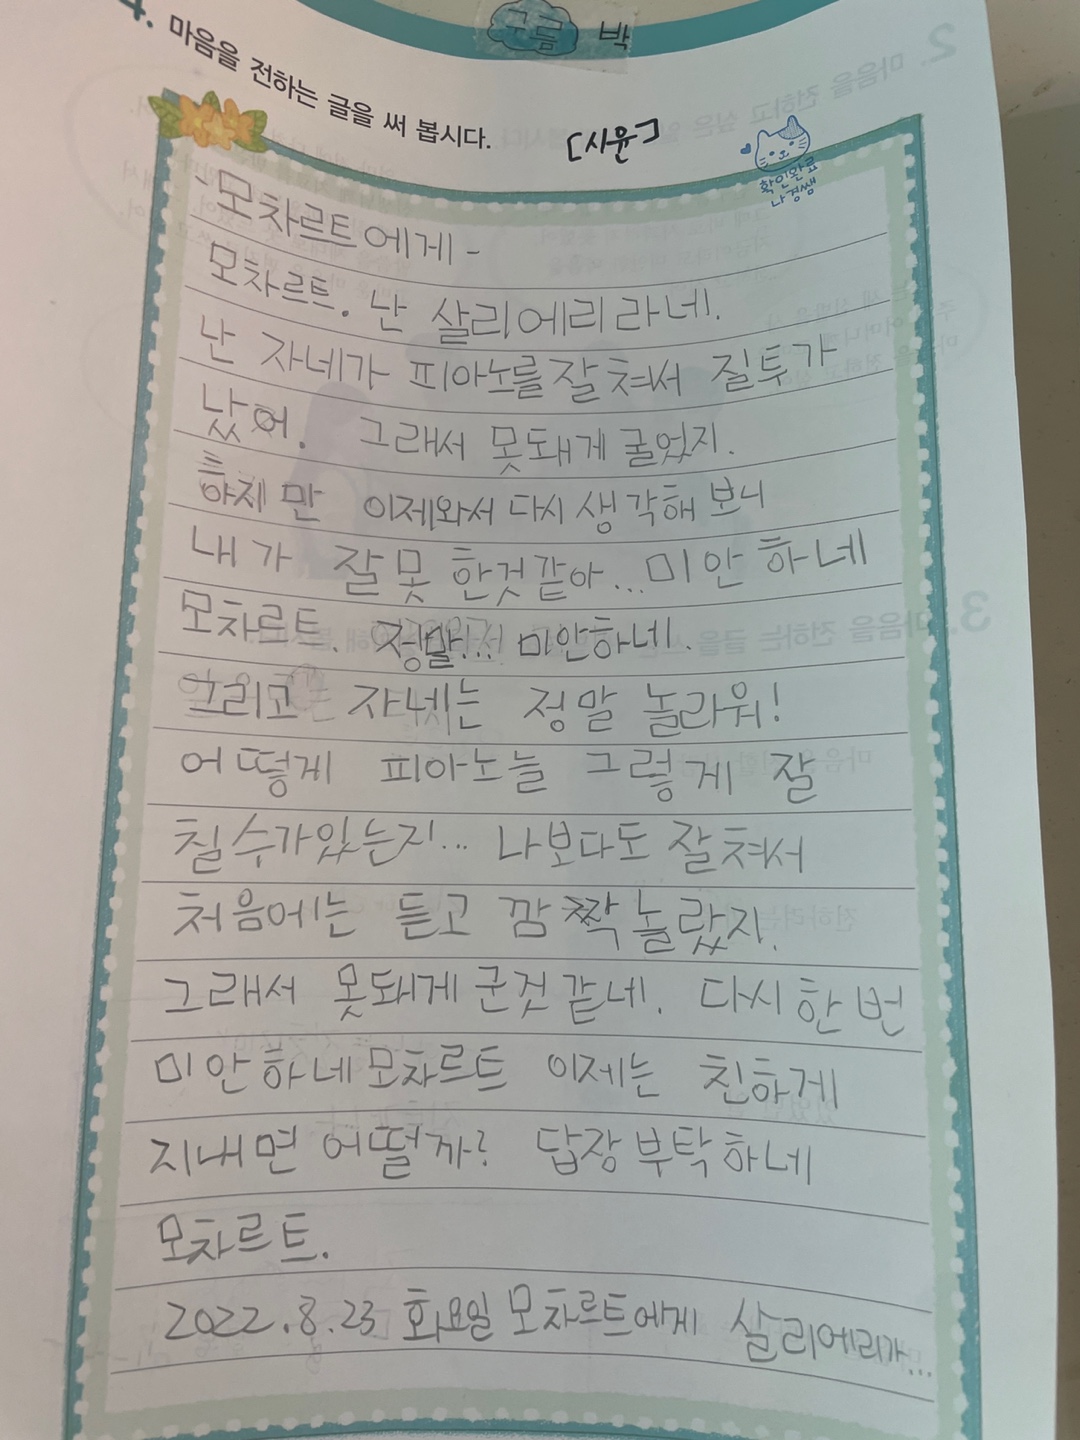 구름 박
4. 마음을 전하는 글을 써 봅시다.
[시윤]
확인완료
나경쌤
-모차르트에게-
모차르트. 난 살리에리라네.
난 자네가 피아노를 잘 쳐서 질투가
났어. 그래서 못돼게 굴었지.
만 이제와서 다시 생각해 보니
내가 잘못 한것 같아... 미안하네
모차르트. 정말... 미안하네.
그리고 자네는 정말 놀라워!
어떻게 피아노늘 그렇게 잘
칠 수가있는지... 나보다도 잘 쳐서
처음에는 듣고 깜짝 놀랐지.
그래서 못돼게 군것 같네. 다시 한 번
미안하네 모차르트 이제는 친하게
지내면 어떨까? 답장 부탁하네
모차르트.
2022.8.23 화요일 모차르트에게 살리에리가...